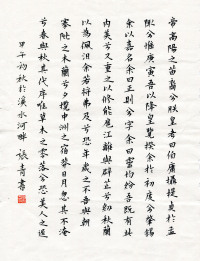 帝高陽之苗裔兮朕皇考曰伯庸攝提貞於孟
陬兮惟庚寅吾以降皇覽揆余於初度兮肇錫
余以嘉名余曰正則兮字余曰靈均紛吾既有此
內美兮又重之以修能扈江離與辟芷兮紉秋蘭
以為佩汩余若將弗及兮恐年歲之不吾與朝
搴阰之木蘭兮夕攬中洲之宿莽日月忽其不淹
兮春與秋其代序惟草木之零落兮恐美人之遲
甲午初秋於水河畔 張青書